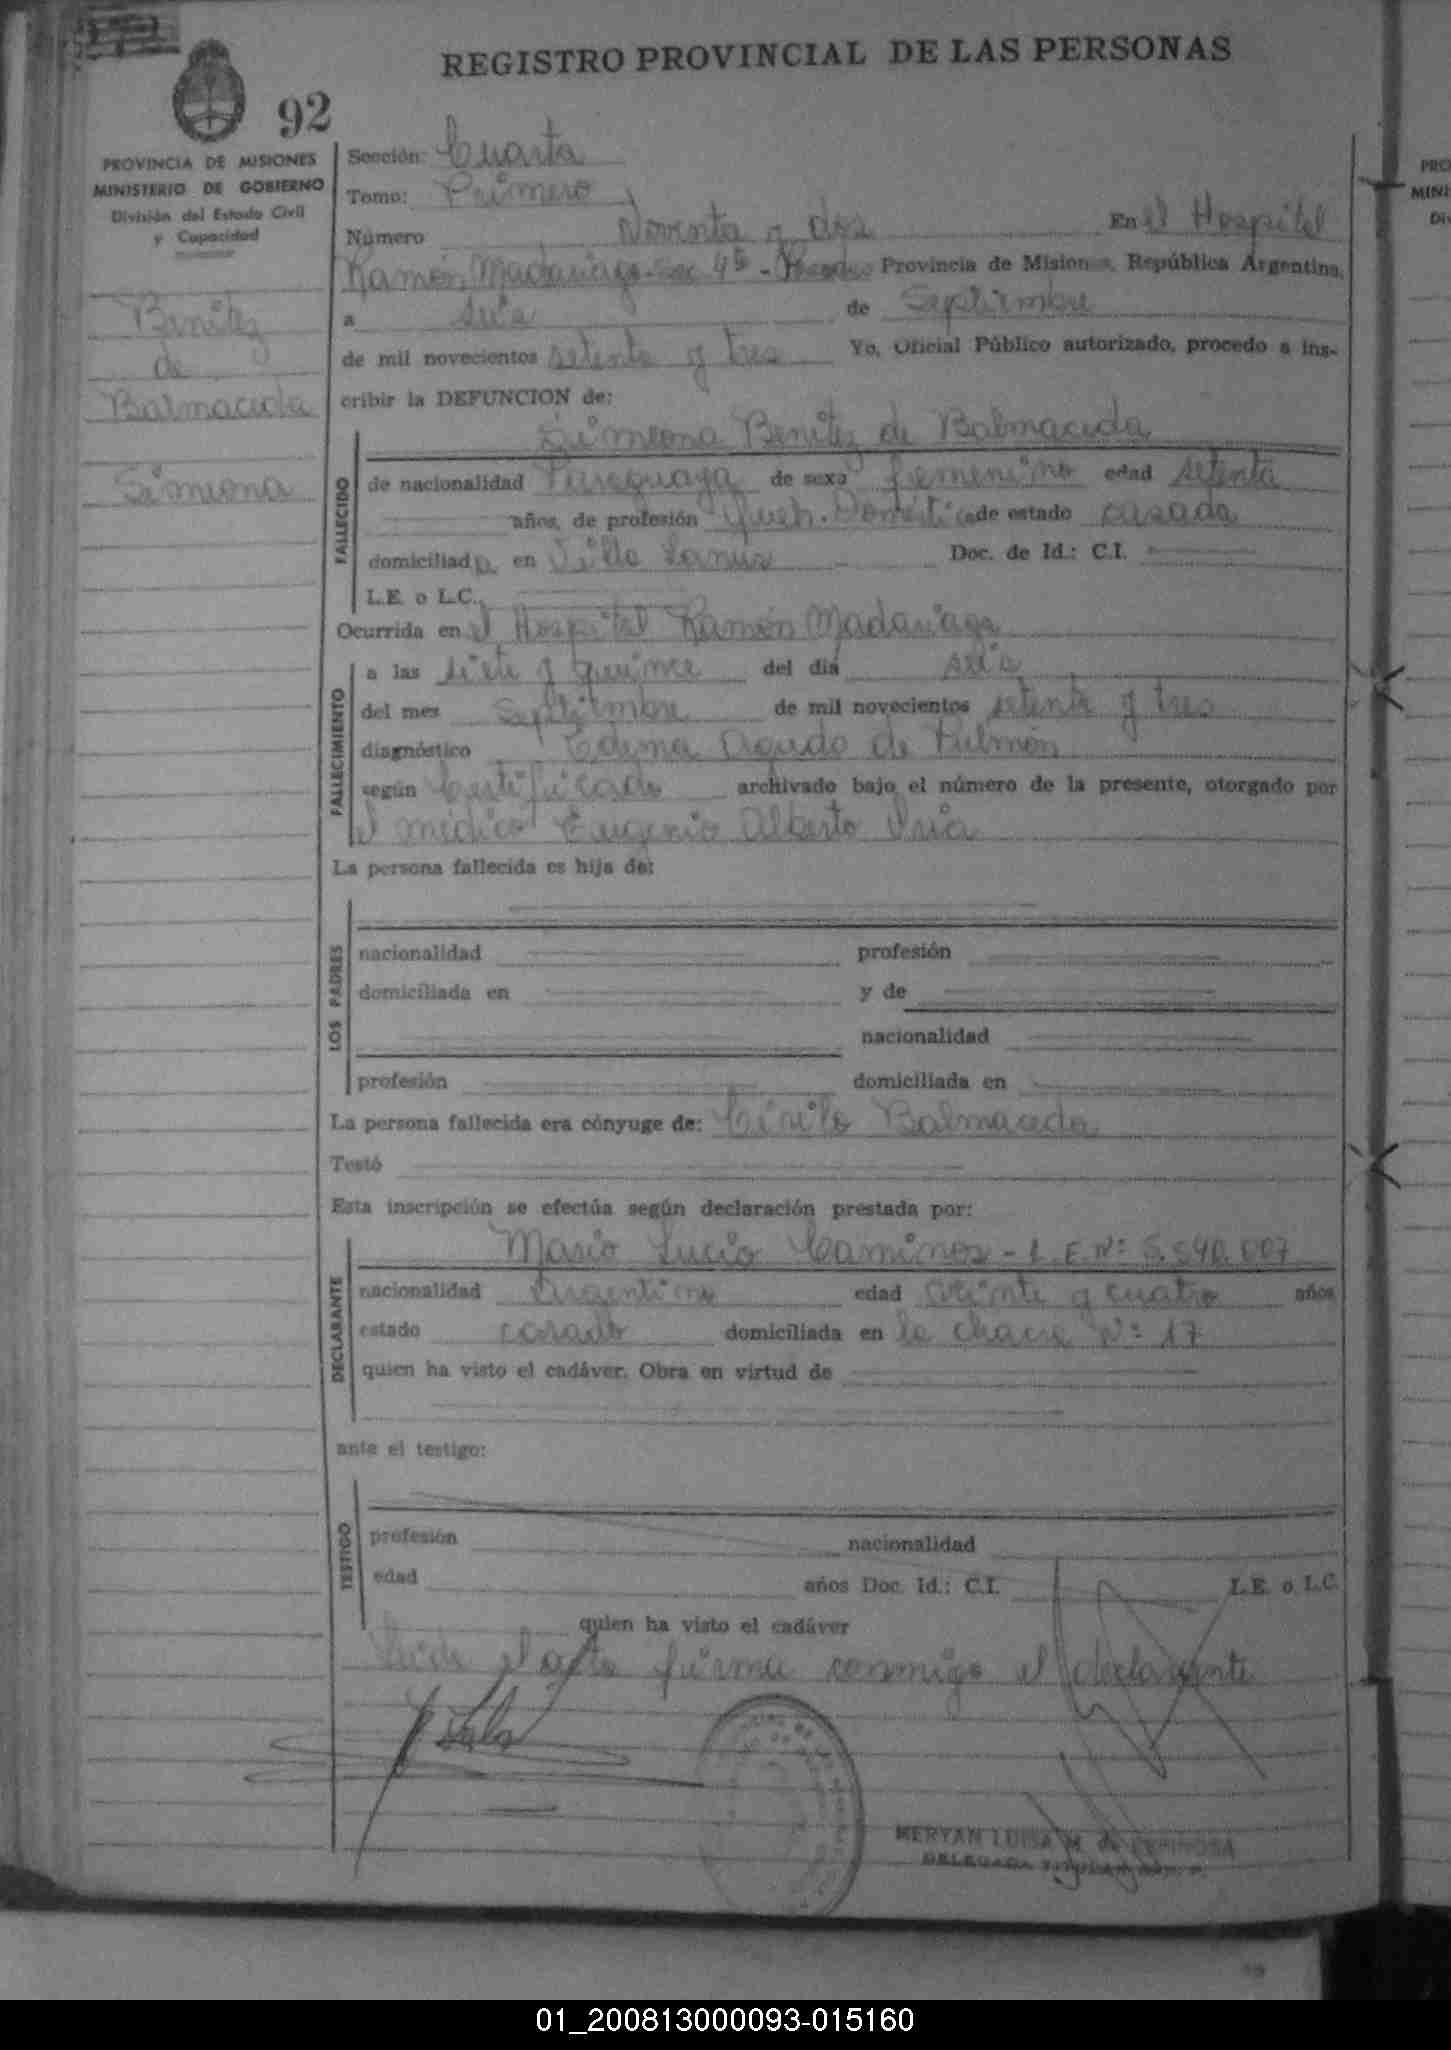 REGISTRO PROVINCIAL DE LAS PERSONAS
92
PROVINCIA DE MISIONES
MINISTERIO DE GOBIERNO
División del Estado Civil
y Capacidad
Benitez
de
Balmaceda
Simeona
Sección: Cuarta
Tomo: Primero
Número Noventa y dos En el Hospital
Ramón Madariaga - Sec 4ta - Provincia de Misiones, República Argentina,
a seis de Septiembre
de mil novecientos setenta y tres Yo, Oficial Público autorizado, procedo a ins-
cribir la DEFUNCION de:
Simeona Benitez de Balmaceda
FALLECIDO
de nacionalidad Paraguaya de sexo femenino edad setenta
años, de profesión Queh. Domésticos de estado casada
domiciliada en Villa Lanus Doc. de Id.: C.I.
L.E. o L.C.
Ocurrida en el Hospital Ramón Madariaga
FALLECIMIENTO
a las siete y quince del día seis
del mes Septiembre de mil novecientos setenta y tres
diagnóstico Edema Agudo de Pulmón
según Certificado archivado bajo el número de la presente, otorgado por
el médico Eugenio Alberto
La persona fallecida es hija de:
LOS PADRES
nacionalidad profesión
domiciliada en y de
nacionalidad
profesión domiciliada en
La persona fallecida era cónyuge de: Cirilo Balmaceda
Testó
Esta inscripción se efectúa según declaración prestada por:
Mario Lucio Caminos - L.E. Nº: 5.540.007
DECLARANTE
nacionalidad Argentino edad veinte y cuatro años
estado casado domiciliada en la chacra Nº 17
quien ha visto el cadáver. Obra en virtud de
ante el testigo:
TESTIGO
profesión nacionalidad
edad años Doc. Id.: C.I. L.E. o L.C.
quien ha visto el cadáver
Leida el acta firma conmigo el declarante
MERYAN LUISA M. de ESPINOSA
DELEGADA
PRO
MINI
Di
01_200813000093-015160